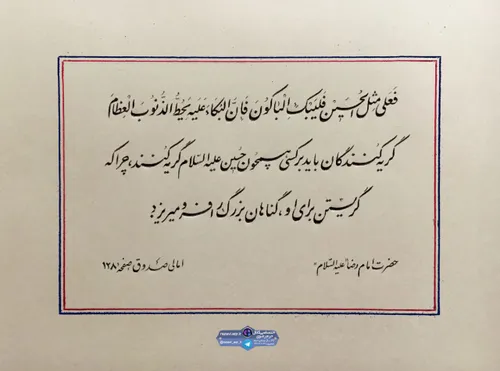 فَعَلی مِثلِ الحُسَینِ فَلیَبکِ الباکُونَ فَاِنَّ البُکاءَ عَلَیهِ یَحُطُّ الذُّنُوبَ العِظامَ
گریه کنندگان باید بر کسی همچون حسین علیه السلام گریه کنند، چرا که
گریستن برای او، گناهان بزرگ را فرو میریزد
حضرت امام رضا "علیه السلام"
امالی صدوق صفحه ۱۲۸